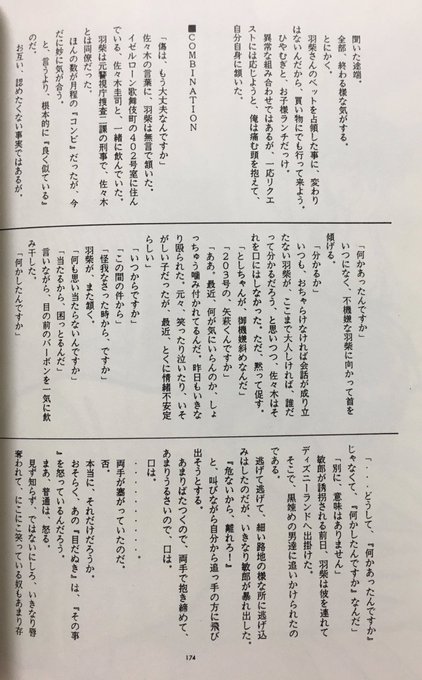 聞いた途端。
全部、終わる様な気がする。
とにかく。
羽柴さんのベットを占領した事に、変わり
はないんだから、買い物にでも行って来よう。
ひやむぎと、お子様ランチだっけ。
異常な組み合わせではあるが、一応リクエ
ストには応じようと、俺は痛む頭を抱えて、
自分自身に頷いた。
■COMBINATION
「傷は、もう大丈夫なんですか」
佐々木の言葉に、羽柴は無言で頷いた。
イゼルローン歌舞伎町の402号室に住ん
でいる、佐々木圭司と、一緒に飲んでいた。
羽柴は元警視庁捜査二課の刑事で、佐々木
とは同僚だった。
ほんの数か月程の『コンビ』だったが、今
だに妙に気が合う。
と、言うより、根本的に『良く似ている』
のだ。
お互い、認めたくない事実ではあるが。
「何かあったんですか」
いつになく、不機嫌な羽柴に向かって首を
傾げる。
「分かるか」
いつも、おちゃらけなければ会話が成り立
たない羽柴が、ここまで大人しければ、誰だ
って分かるだろう、と思いつつ、佐々木はそ
れを口にはしなかった。ただ、黙って促す。
「としちゃんが、御機嫌斜めなんだ」
「203号の、矢萩くんですか」
「ああ。最近、何が気にいらんのか、しょ
っちゅう噛み付かれてるんだ。昨日もいきな
り殴られた。元々、笑ったり泣いたり、いそ
がしい子だったが、最近、とくに情緒不安定
らしい」
「いつからですか」
「この間の件から」
「怪我なさった時から、ですか」
羽柴が、また頷く。
「何も思い当たらないんですか」
「当たるから、困っとるんだ」
言いながら、目の前のバーボンを一気に飲
み干した。
「何かしたんですか」
「・・・どうして、『何かあったんですか』
じゃなくて、『何かしたんですか』なんだ」
「別に、意味はありません」
敏郎が誘拐される前日、羽柴は彼を連れて
ディズニーランドへ出掛けた。
そこで、黒ずくめの男達に追いかけられたの
である。
逃げて逃げて、細い路地の様な所に逃げ込
みはしたのだが、いきなり敏郎が暴れ出した。
『危ないから、離れろ!』
と、叫びながら自分から追っ手の方に飛び
出そうとする。
あまりばたつくので、両手で抱き締めて、
あまりうるさいので、口は。
口は。
・・・・・・・・・。
両手が塞がっていたのだ。
否。
本当に、それだけだろうか。
おそらく、あの『目だぬき』は、『その事
』を怒っているんだろう。
まあ、普通は、怒る。
見ず知らず、ではないにしろ、いきなり唇
奪われて、にこにこ笑っている奴もあまり存
174